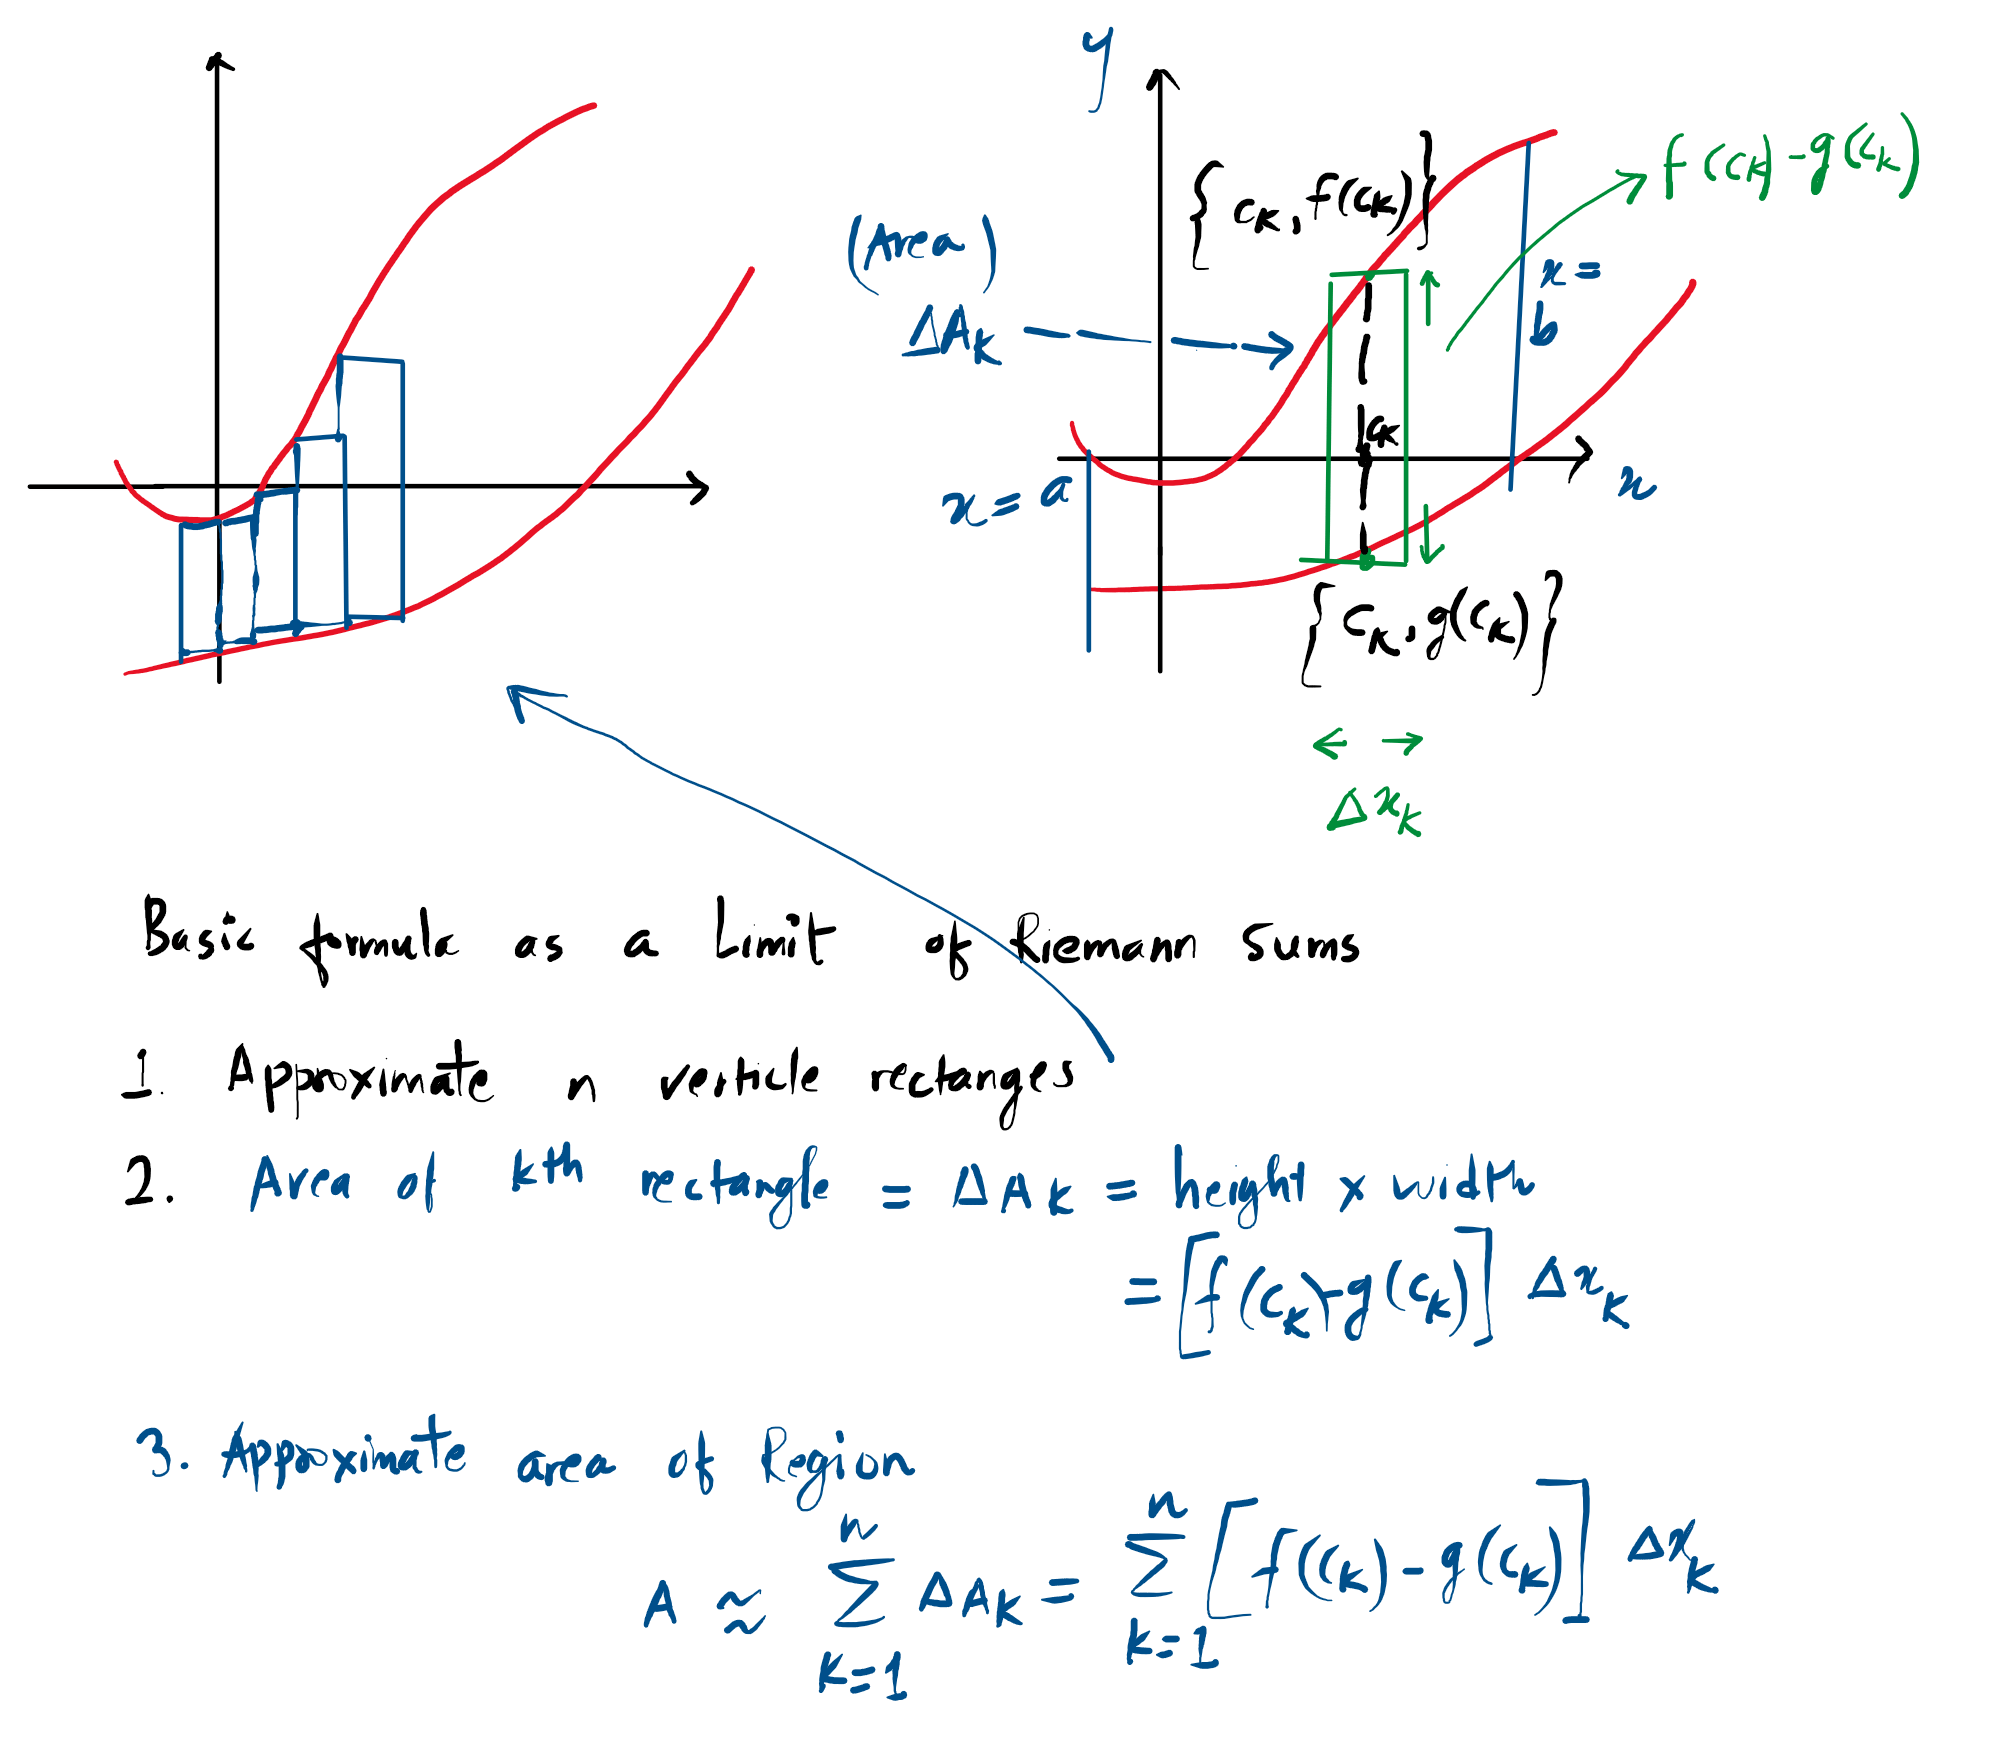 y
{c_k, f(c_k)}
f(c_k) - g(c_k)
(Area)
ΔA_k
x =
b
c_k
x = a
x
{c_k, g(c_k)}
Δx_k
Basic formula as a Limit of Riemann sums
1. Approximate n verticle rectanges
2. Area of kth rectangle = ΔA_k = height x width
= [f(c_k) - g(c_k)] Δx_k
3. Approximate area of Region
A ≈ ∑_{k=1}^{n} ΔA_k = ∑_{k=1}^{n} [f(c_k) - g(c_k)] Δx_k